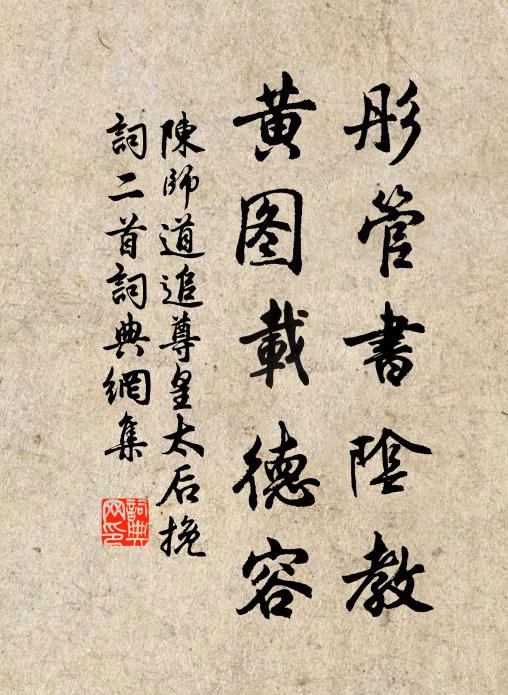 彤管書陰教
黄图載德容
陳師道追尊皇太后挽
詞二首詞典網集
詞典
网印